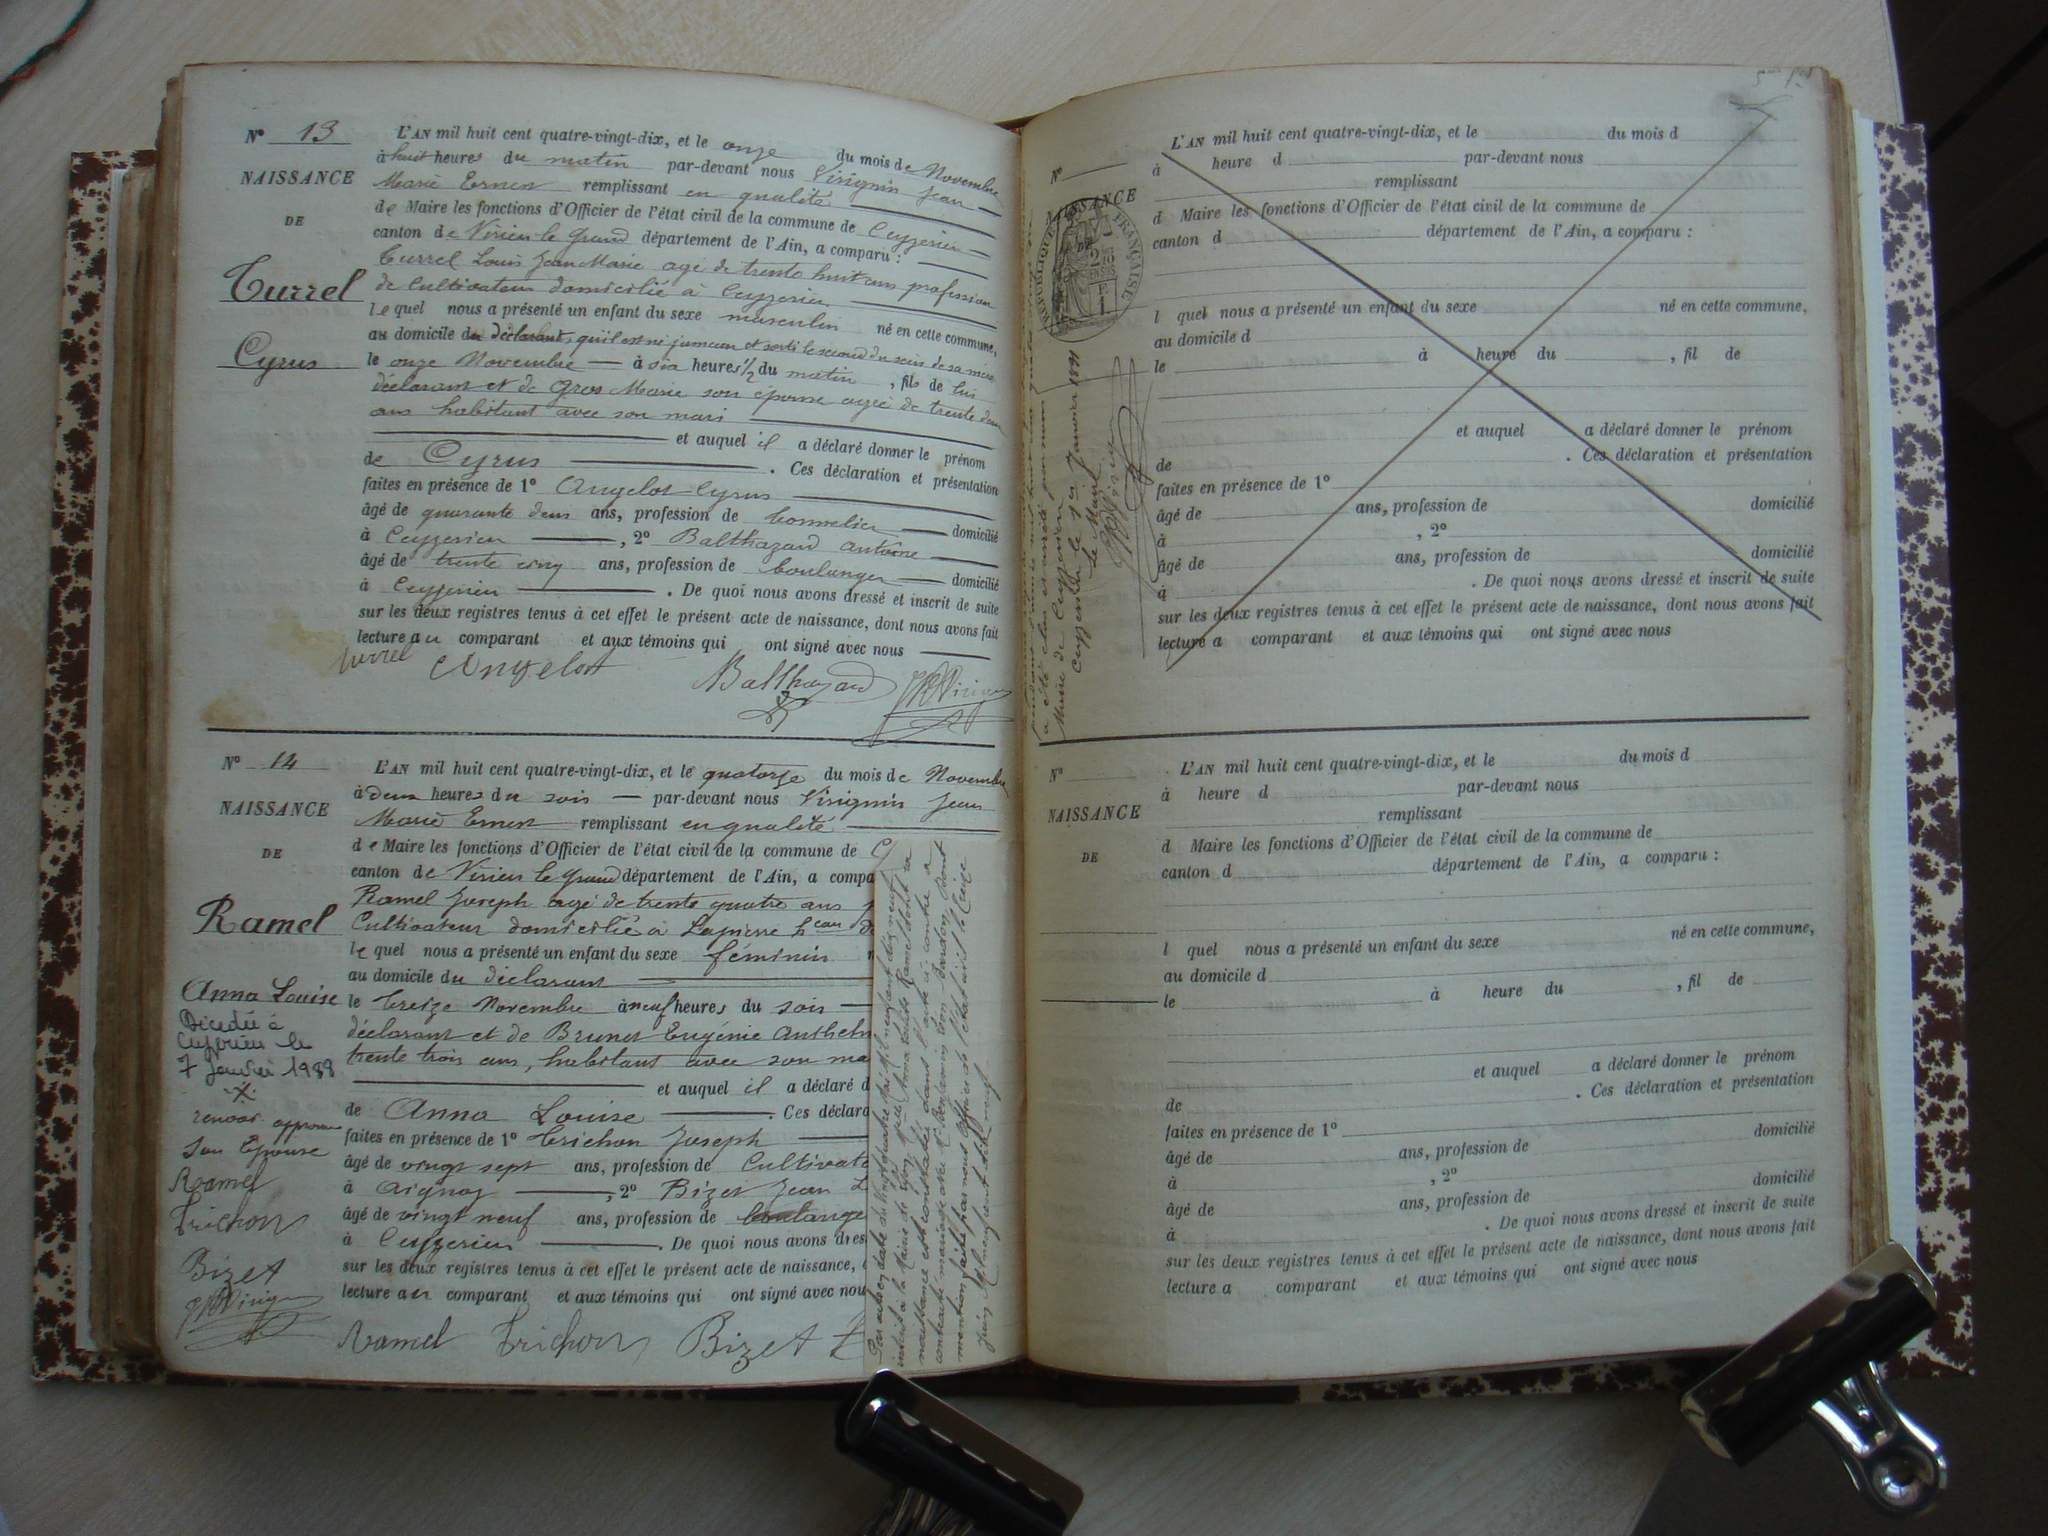 N° 13
NAISSANCE
DE
Turrel
Cyrus
L'AN mil huit cent quatre-vingt-dix, et le onze du mois de Novembre
à huit heures du matin par-devant nous Virignin Jean
Marie Ernest remplissant en qualité
de Maire les fonctions d'Officier de l'état civil de la commune de Ceyzerieu
canton de Virieu le Grand département de l'Ain, a comparu :
Turrel Louis Jean Marie agé de trente huit ans profession
de Cultivateur domicilié à Ceyzerieu
lequel nous a présenté un enfant du sexe masculin né en cette commune,
au domicile du déclarant, qu'il est né jumeau et sorti le second du sein de sa mère
le onze Novembre à six heures 1/2 du matin, fils de lui
déclarant et de Gros Marie son épouse agée de trente deux
ans habitant avec son mari
et auquel il a déclaré donner le prénom
de Cyrus . Ces déclaration et présentation
faites en présence de 1° Angelot Cyrus
âgé de quarante deux ans, profession de tonnelier domicilié
à Ceyzerieu , 2° Balthazard Antoine
âgé de trente cinq ans, profession de boulanger domicilié
à Ceyzerieu . De quoi nous avons dressé et inscrit de suite
sur les deux registres tenus à cet effet le présent acte de naissance, dont nous avons fait
lecture au comparant et aux témoins qui ont signé avec nous
Turrel Angelot Balthazard JMVirignin
N° 14
NAISSANCE
DE
Ramel
Anna Louise
Décédée à
Ceyzerieu le
7 Janvier 1988
X
renvoi approuvé
son Epouse
Ramel
Trichon
Bizet
JMVirignin
L'AN mil huit cent quatre-vingt-dix, et le quatorze du mois de Novembre
à deux heures du soir par-devant nous Virignin Jean
Marie Ernest remplissant en qualité
de Maire les fonctions d'Officier de l'état civil de la commune de C
canton de Virieu le Grand département de l'Ain, a compa
Ramel Joseph agé de trente quatre ans
Cultivateur domicilié à Lapierre heau de
lequel nous a présenté un enfant du sexe féminin
au domicile du déclarant
le treize Novembre à neuf heures du soir
déclarant et de Brunet Eugénie Anthelm
trente trois ans, habitant avec son ma
et auquel il a déclaré d
de Anna Louise . Ces déclara
faites en présence de 1° Trichon Joseph
âgé de vingt sept ans, profession de Cultivate
à Aignoz , 2° Bizet Jean L
âgé de vingt neuf ans, profession de boulange
à Ceyzerieu . De quoi nous avons dres
sur les deux registres tenus à cet effet le présent acte de naissance,
lecture au comparant et aux témoins qui ont signé avec nou
Ramel Trichon Bizet
Par acte en date du vingt quatre Mai mil neuf cent dix neuf
inscrit à la Mairie de Lyon, Melle Anna Louise Ramel dont la
naissance est constatée dans l'acte ci-contre a
contracté mariage avec M. Benjamin Léon Dardon dont
mention faite par nous Officier de l'état civil le Treize
Juin Mil neuf cent dix neuf
N°
NAISSANCE
RÉPUBLIQUE FRANÇAISE
a été clos et arrêté par nous
Maire de Ceyzerieu
Ceyzerieu le 1er Janvier 1891
Le Maire
JMVirignin
L'AN mil huit cent quatre-vingt-dix, et le du mois d
à heure d par-devant nous
remplissant
d Maire les fonctions d'Officier de l'état civil de la commune de
canton d département de l'Ain, a comparu :
l quel nous a présenté un enfant du sexe né en cette commune,
au domicile d
le à heure du , fil de
et auquel a déclaré donner le prénom
de . Ces déclaration et présentation
faites en présence de 1°
âgé de ans, profession de domicilié
à , 2°
âgé de ans, profession de domicilié
à . De quoi nous avons dressé et inscrit de suite
sur les deux registres tenus à cet effet le présent acte de naissance, dont nous avons fait
lecture a comparant et aux témoins qui ont signé avec nous
N°
NAISSANCE
DE
L'AN mil huit cent quatre-vingt-dix, et le du mois d
à heure d par-devant nous
remplissant
d Maire les fonctions d'Officier de l'état civil de la commune de
canton d département de l'Ain, a comparu :
l quel nous a présenté un enfant du sexe né en cette commune,
au domicile d
le à heure du , fil de
et auquel a déclaré donner le prénom
de . Ces déclaration et présentation
faites en présence de 1°
âgé de ans, profession de domicilié
à , 2°
âgé de ans, profession de domicilié
à . De quoi nous avons dressé et inscrit de suite
sur les deux registres tenus à cet effet le présent acte de naissance, dont nous avons fait
lecture a comparant et aux témoins qui ont signé avec nous